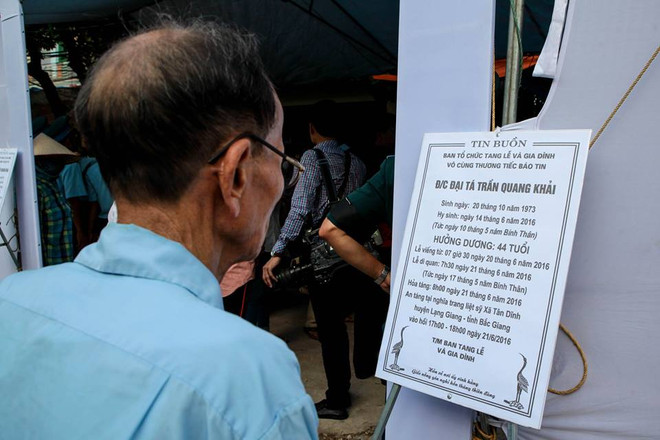 TIN BUỒN
BAN TỔ CHỨC TANG LỄ VÀ GIA ĐÌNH
VÔ CÙNG THƯƠNG TIẾC BÁO TIN
Đ/C ĐẠI TÁ TRẦN QUANG KHẢI
Sinh ngày: 20 tháng 10 năm 1973
Hy sinh: ngày 14 tháng 6 năm 2016
(Tức ngày 10 tháng 5 năm Bính Thân)
HƯỞNG DƯƠNG: 44 TUỔI
Lễ viếng từ: 07 giờ 30 ngày 20 tháng 6 năm 2016
Lễ di quan: 7h30 ngày 21 tháng 6 năm 2016
(Tức ngày 17 tháng 5 năm Bính Thân)
Hỏa táng: 8h00 ngày 21 tháng 6 năm 2016
An táng tại nghĩa trang liệt sỹ Xã Tân Dĩnh
huyện Lạng Giang - tỉnh Bắc Giang
vào hồi 17h00 - 18h00 ngày 21/6/2016
T/M BAN TANG LỄ
VÀ GIA ĐÌNH